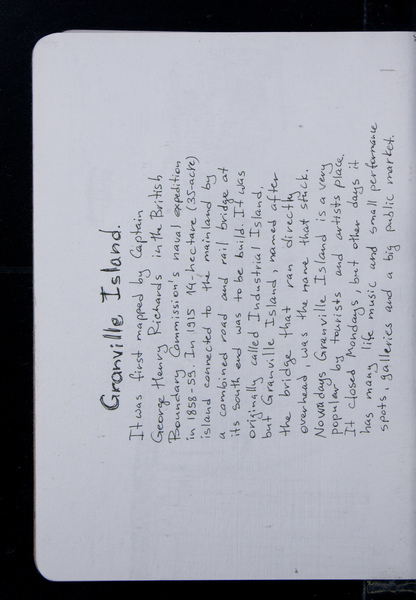 Granville Island.
It was first mapped by Captain
George Henry Richards in the British
Boundary Commission's naval expedition
in 1858-59. In 1915 14-hectare (35-acre)
island connected to the mainland by
a combined road and rail bridge at
its south end was to be build. It was
originally called Industrial Island,
but Granville Island, named after
the bridge that ran directly
overhead was the name that stuck.
Nowadays Granville Island is a very
popular by tourists and artists place.
It closed Mondays, but other days it
has many life music and small performance
spots, galleries and a big public market.